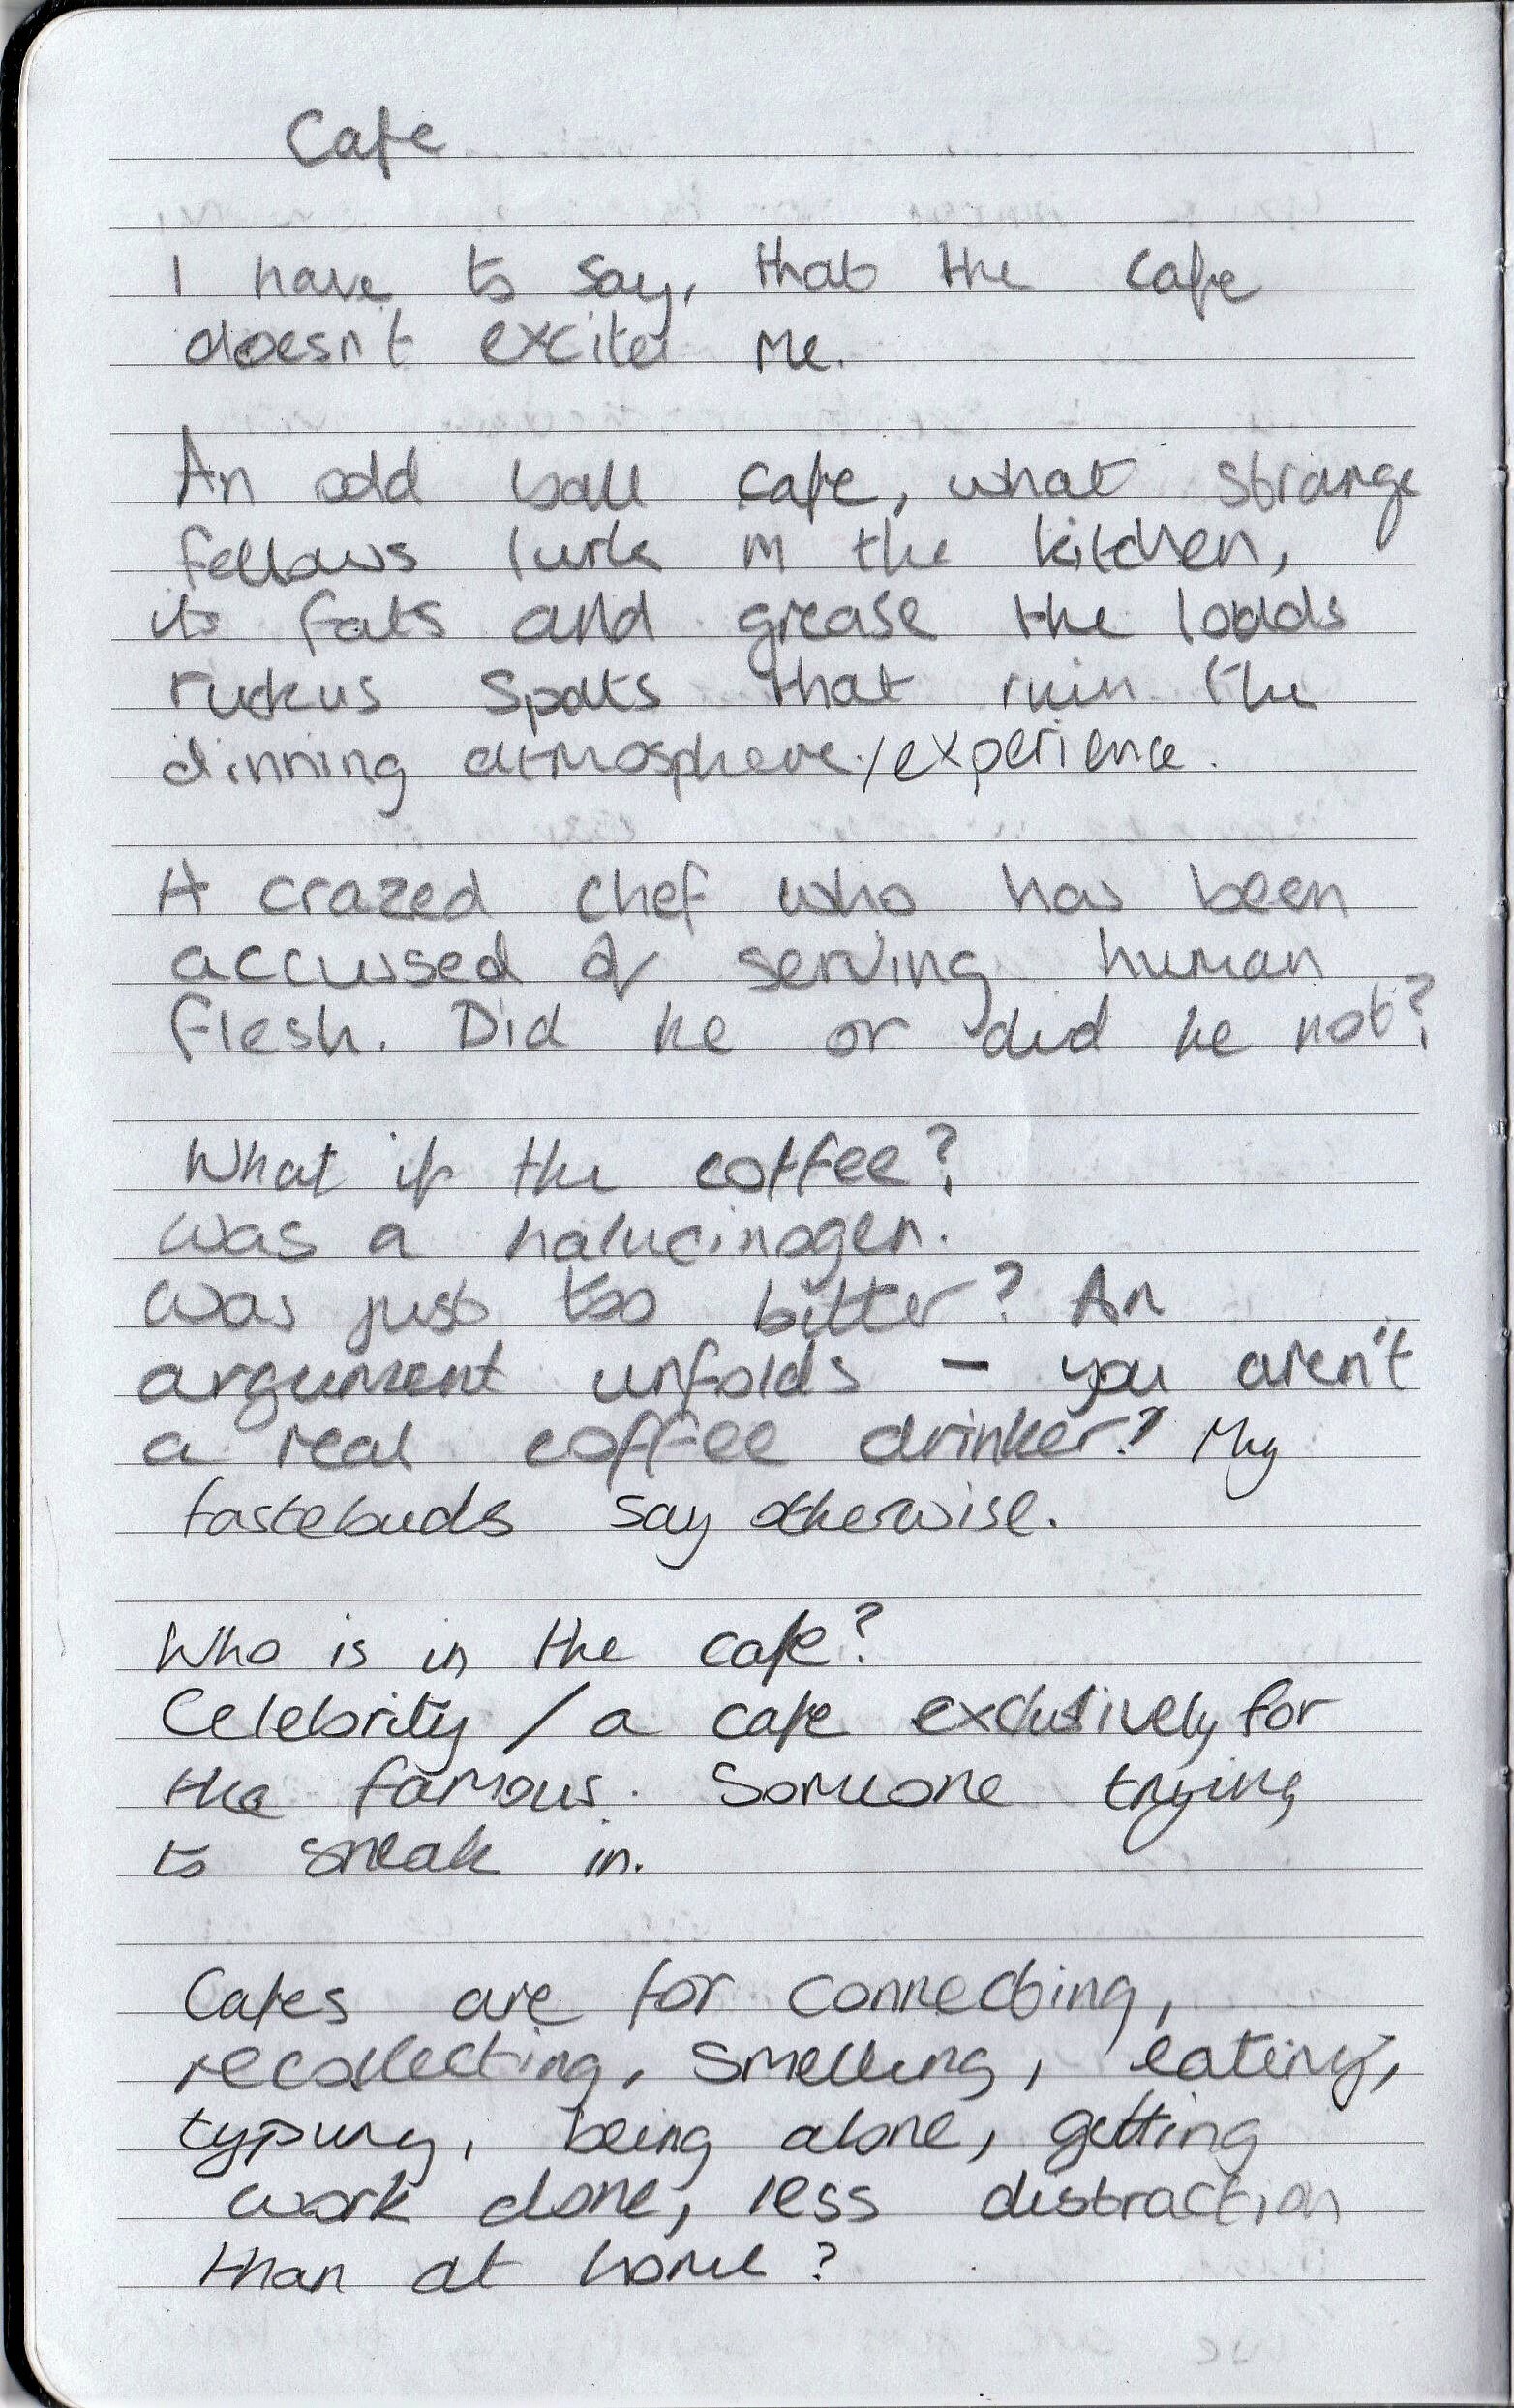 Cafe
I have to say, that the cafe
doesn't excite me.
An odd ball cafe, what strange
fellows lurk in the kitchen,
its fats and grease the
ruckus spots that ruin the
dinning atmosphere./experience.
A crazed chef who has been
accussed of serving human
flesh. Did he or did he not?
What if the coffee?
was a halucinogen.
was just too bitter? An
argument unfolds - you aren't
a real coffee drinker? My
tastebuds say otherwise.
Who is in the cafe?
Celebrity / a cafe exclusively for
the famous. Someone trying
to sneak in.
Cafes are for connecting,
recollecting, smelling, eating,
typing, being alone, getting
work done, less distraction
than at home?